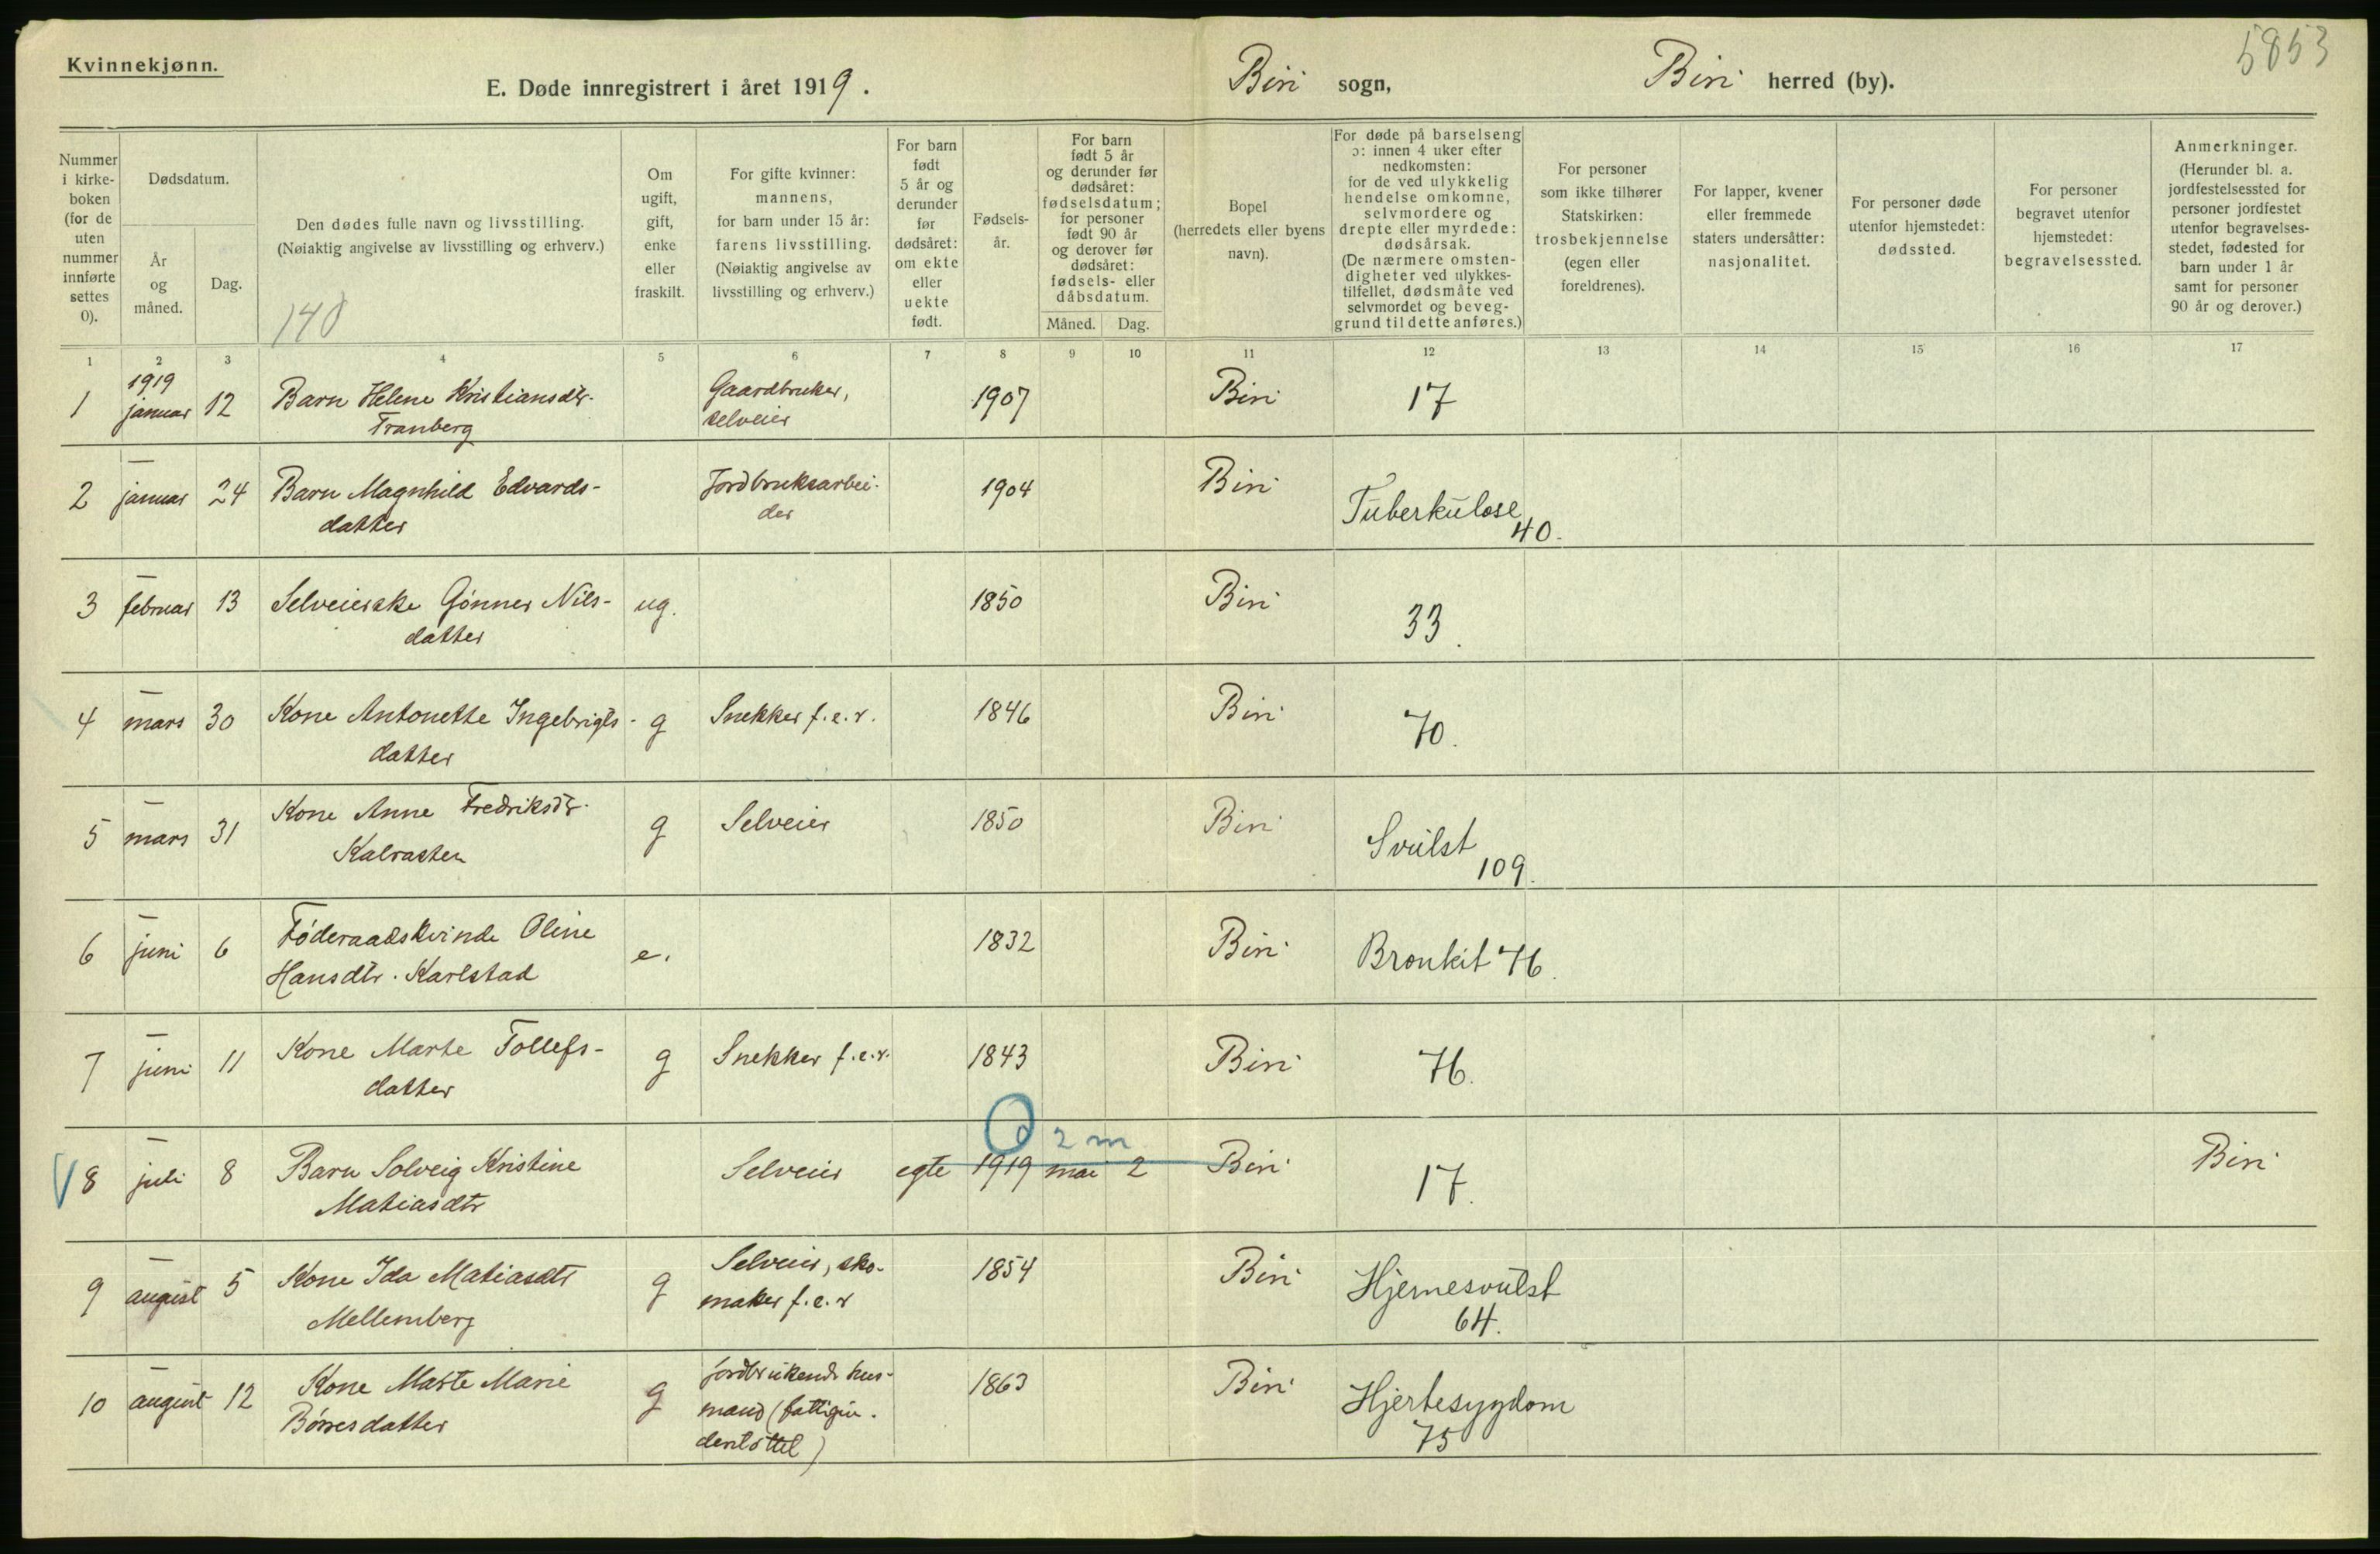 Kvinnekjønn.
E. Døde innregistrert i året 1919.
Biri sogn,
Biri herred (by).
5853
Nummer
i kirke-
boken
(for de
uten
nummer
innførte
settes
0).
Dødsdatum.
År
og
måned.
Dag.
Den dødes fulle navn og livsstilling.
(Nøiaktig angivelse av livsstilling og erhverv.)
140
Om
ugift,
gift,
enke
eller
fraskilt.
For gifte kvinner:
mannens,
for barn under 15 år:
farens livsstilling.
(Nøiaktig angivelse av
livsstilling og erhverv.)
For barn
født
5 år og
derunder
før
dødsåret:
om ekte
eller
uekte
født.
Fødsels-
år.
For barn
født 5 år
og derunder før
dødsåret:
fødselsdatum;
for personer
født 90 år
og derover før
dødsåret:
fødsels- eller
dåbsdatum.
Måned. Dag.
Bopel
(herredets eller byens
navn).
For døde på barselseng
ɔ: innen 4 uker efter
nedkomsten:
for de ved ulykkelig
hendelse omkomne,
selvmordere og
drepte eller myrdede:
dødsårsak.
(De nærmere omsten-
digheter ved ulykkes-
tilfellet, dødsmåte ved
selvmordet og beveg-
grund til dette anføres.)
For personer
som ikke tilhører
Statskirken:
trosbekjennelse
(egen eller
foreldrenes).
For lapper, kvener
eller fremmede
staters undersåtter:
nasjonalitet.
For personer døde
utenfor hjemstedet:
dødssted.
For personer
begravet utenfor
hjemstedet:
begravelsessted.
Anmerkninger.
(Herunder bl. a.
jordfestelsessted for
personer jordfestet
utenfor begravelses-
stedet, fødested for
barn under 1 år
samt for personer
90 år og derover.)
1 2 3 4 5 6 7 8 9 10 11 12 13 14 15 16 17
1919
1 januar 12 Barn Helene Kristiansdtr. Gaardbruker, 1907 Biri 17
Tranberg selveier
—
2 januar 24 Barn Magnhild Edvards- Jordbruksarbei- 1904 Biri Tuberkulose
datter der 40.
—
3 februar 13 Selveierske Gønner Nils- ug. 1850 Biri 33.
datter
—
4 mars 30 Kone Antonette Ingebrigts- g Snekker f.e.r. 1846 Biri 70.
datter
—
5 mars 31 Kone Anne Fredriksdtr. g Selveier 1850 Biri Svulst
Kalrasten 109.
—
6 juni 6 Føderaadskvinde Oline e. 1832 Biri Bronkit 76.
Hansdtr. Karlstad
—
7 juni 11 Kone Marte Tollefs- g Snekker f.e.r. 1843 Biri 76.
datter
0 2 m
—
8 juli 8 Barn Solveig Kristine Selveier egte 1919 mai 2 Biri 17. Biri
Matiasdtr
—
9 august 5 Kone Ida Matiasdtr g Selveier, sko- 1854 Biri Hjernesvulst
Mellemberg maker f.e.r 64.
—
10 august 12 Kone Marte Marie g jordbrukende hus- 1863 Biri Hjertesygdom
Børresdatter mand (fattigun- 75
derstøttet)